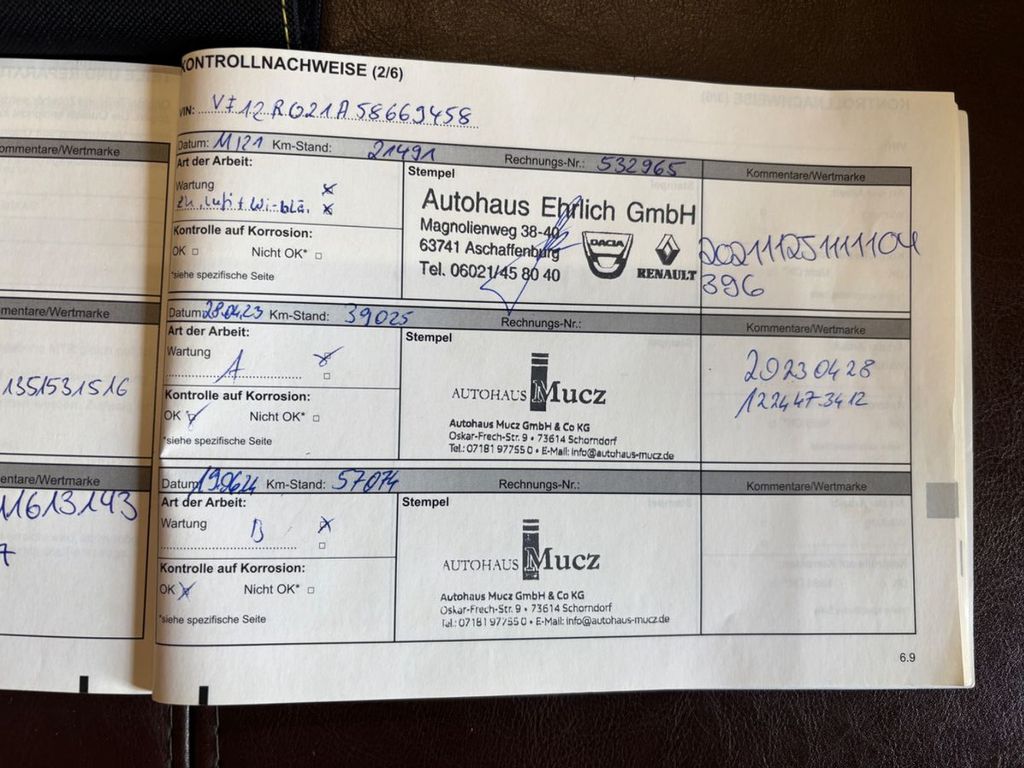 KONTROLLNACHWEISE (2/6)
VIN:
Datum: 11/21 Km-Stand: 21491 Rechnungs-Nr.: 532965 Kommentare/Wertmarke
Art der Arbeit: Stempel
Wartung x
x
Autohaus Ehrlich GmbH
Magnolienweg 38-40
63741 Aschaffenburg
Tel. 06021/45 80 40
DACIA
RENAULT
396
Kontrolle auf Korrosion:
OK Nicht OK*
*siehe spezifische Seite
Datum 28.04.23 Km-Stand: 39025 Rechnungs-Nr.: Kommentare/Wertmarke
Art der Arbeit: Stempel
Wartung A
AUTOHAUS Mucz
Autohaus Mucz GmbH & Co KG
Oskar-Frech-Str. 9 • 73614 Schorndorf
Tel.: 07181 97755 0 • E-Mail: info@autohaus-mucz.de
20230428
1224473412
Kontrolle auf Korrosion:
OK Nicht OK*
*siehe spezifische Seite
Datum 19.06.24 Km-Stand: 57074 Rechnungs-Nr.: Kommentare/Wertmarke
Art der Arbeit: Stempel
Wartung B x
AUTOHAUS Mucz
Autohaus Mucz GmbH & Co KG
Oskar-Frech-Str. 9 • 73614 Schorndorf
Tel.: 07181 97755 0 • E-Mail: info@autohaus-mucz.de
Kontrolle auf Korrosion:
OK x Nicht OK*
*siehe spezifische Seite
6.9
ommentare/Wertmarke
mentare/Wertmarke
1351531516
entare/Wertmarke
11613143
7